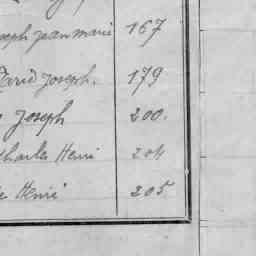 Joseph Jean Marie 167
David Joseph. 179
Joseph 200.
Charles Henri 204
Henri 205